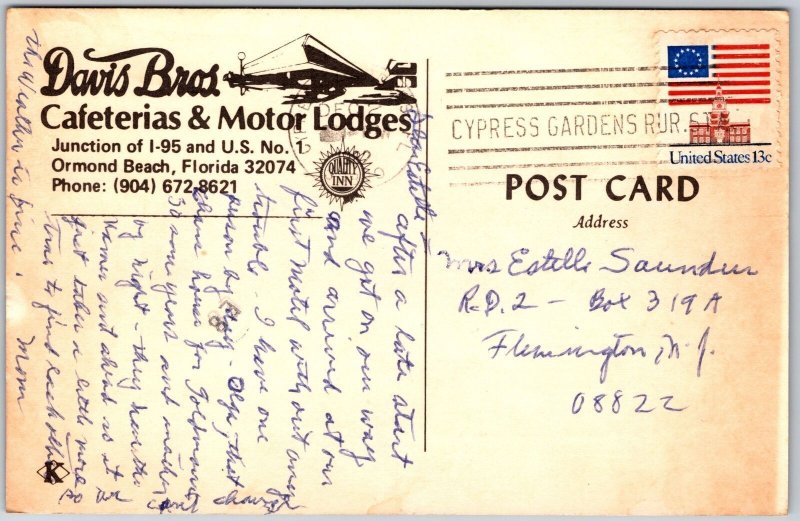 Davis Bros.
Cafeterias & Motor Lodges
Junction of I-95 and U.S. No. 1
Ormond Beach, Florida 32074
Phone: (904) 672-8621
QUALITY
INN
CYPRESS GARDENS RUR. STA
United States 13c
POST CARD
Address
Mrs Estelle Saunders
R.D.2 - Box 319A
Flemington, N.J.
08822
Dear Estelle
after a late start
we got on our way
and arrived at our
first motel without any
trouble - I have one
person by Olga, that
keeps house for
so some years and
by night - they
names and ahead so it
just takes a little more
time to find each other
Mom
the Weather is fine.
K